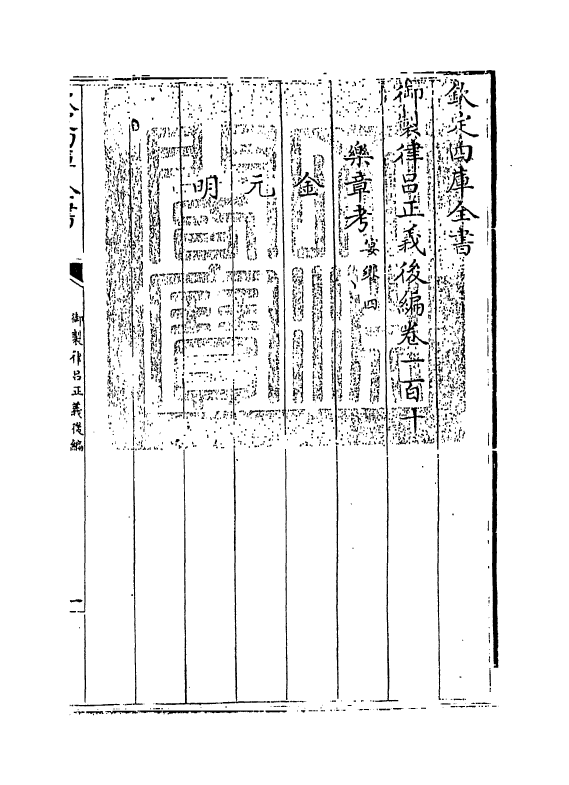 欽定四庫全書
御製律呂正義後編卷一百十
樂章考宴饗四
金
元
明
御製律呂正義後編
一